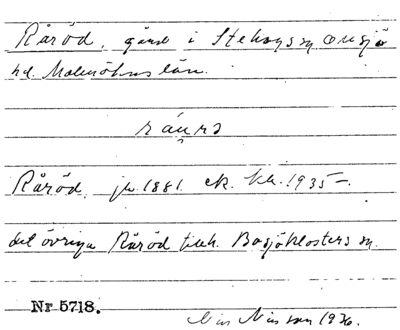 Råröd, gård i Stehag sn Onsjö
hd. Malmöhus län.
Råröd, jb. 1881. ek. kh. 1935 –.
det övriga Råröd tillh. Bosjöklosters sn.
Nr 5718.
Nils Nilsson 1936.